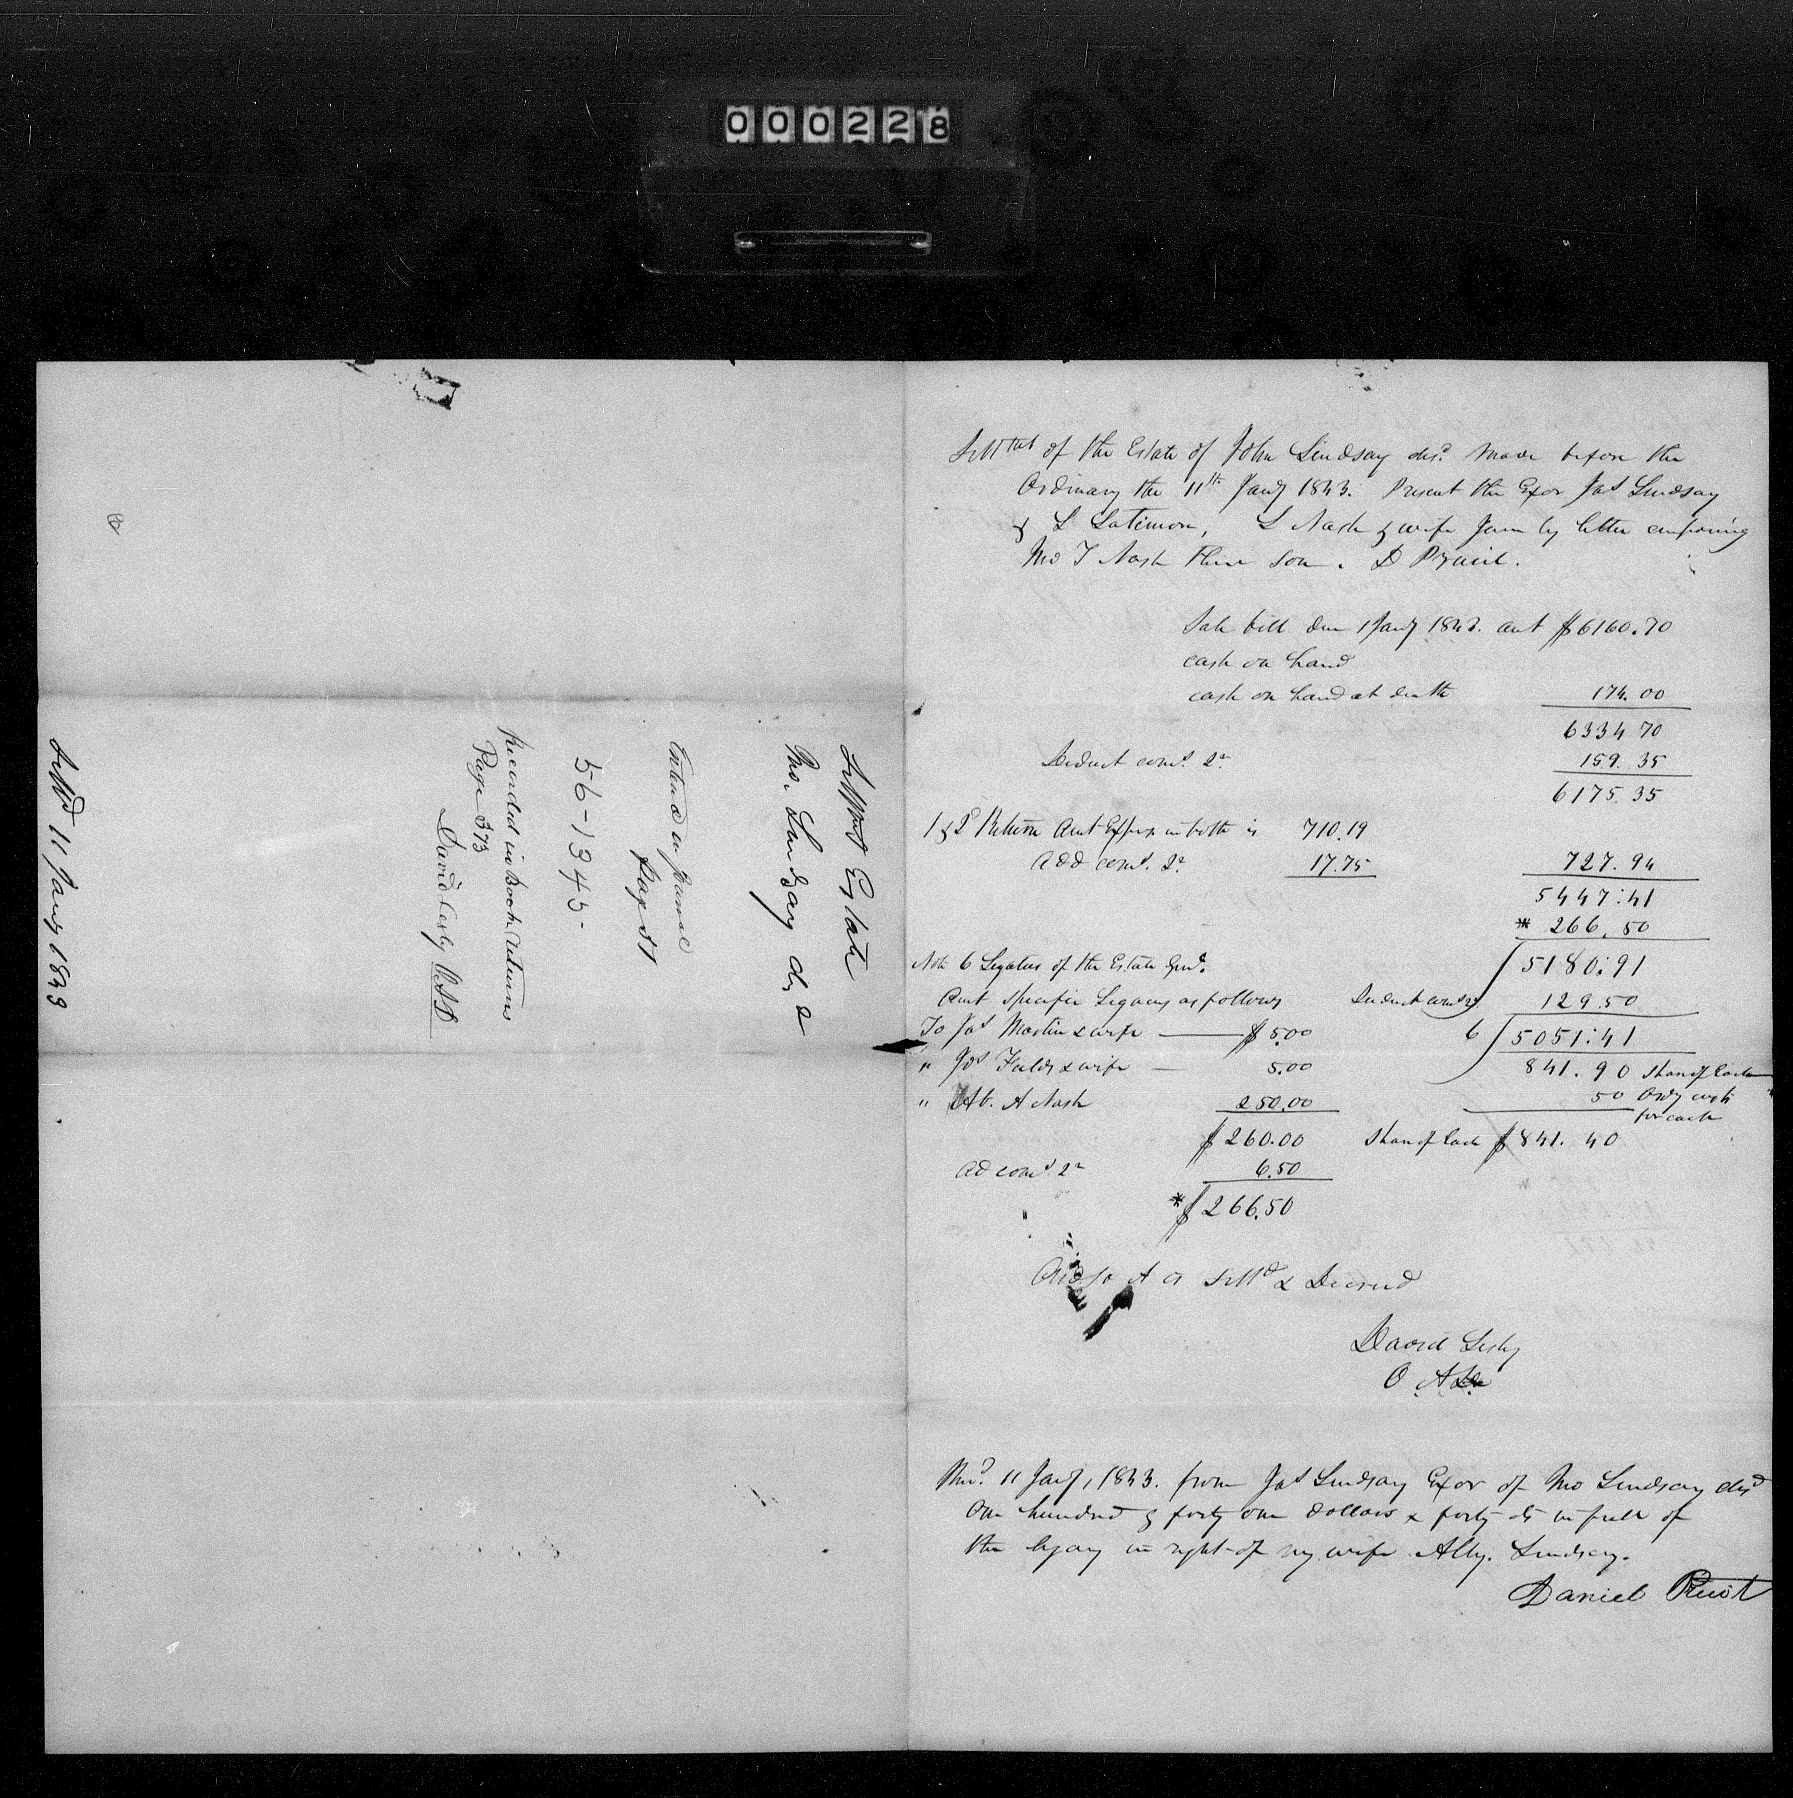 000228
Settmt of the Estate of John Lindsay decd. made before the
Ordinary the 11th Jany 1843. Present the Exor Jas Lindsay
& L Latimon, L Nash & wife Jane by letter
Jno T Nash their son. D Pruit.
Sale bill due 1 Jany 1843. amt $6160.70
cash on hand
cash on hand at death 174.00
6334 70
Deduct coms. 159.35
6175.35
1 & 2 Return Amt Expr in both is 710.19
add coms. 17.75 727.94
5447:41
* 266.50
Note 6 Legatees of the Estate 5180:91
Amt Specific Legacy as follows Deduct coms 129.50
To Jas Martin & wife $5.00 6 5051:41
" Jos Fields & wife 5.00 841.90 Share of Each
" A Nash 250.00 50 Ordy costs
for each
$260.00 Share of Each $841.40
Ad coms 6.50
*$266.50
Also A Settd & Decreed
David Lesly
O A D
Recd. 11 Jany, 1843. from Jas Lindsay Exor of Jno Lindsay decd
One hundred & forty one dollars & forty cts in full of
the legacy in right of my wife Ally. Lindsay.
Daniel Pruit
Settlmt Estate
Jno. Lindsay decd
Entered in
Page 51
56-1343-
Recorded in Book Returns
Page 373
David Lesly OAD
Settd 11 Jany 1843